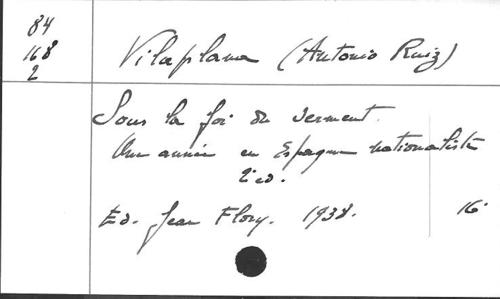 84
168
2
Vilaplana (Antonio Ruiz)
Sous la foi du serment.
Une année en Espagne nationaliste
2e ed.
Ed. Jean Flory. 1938. 16°